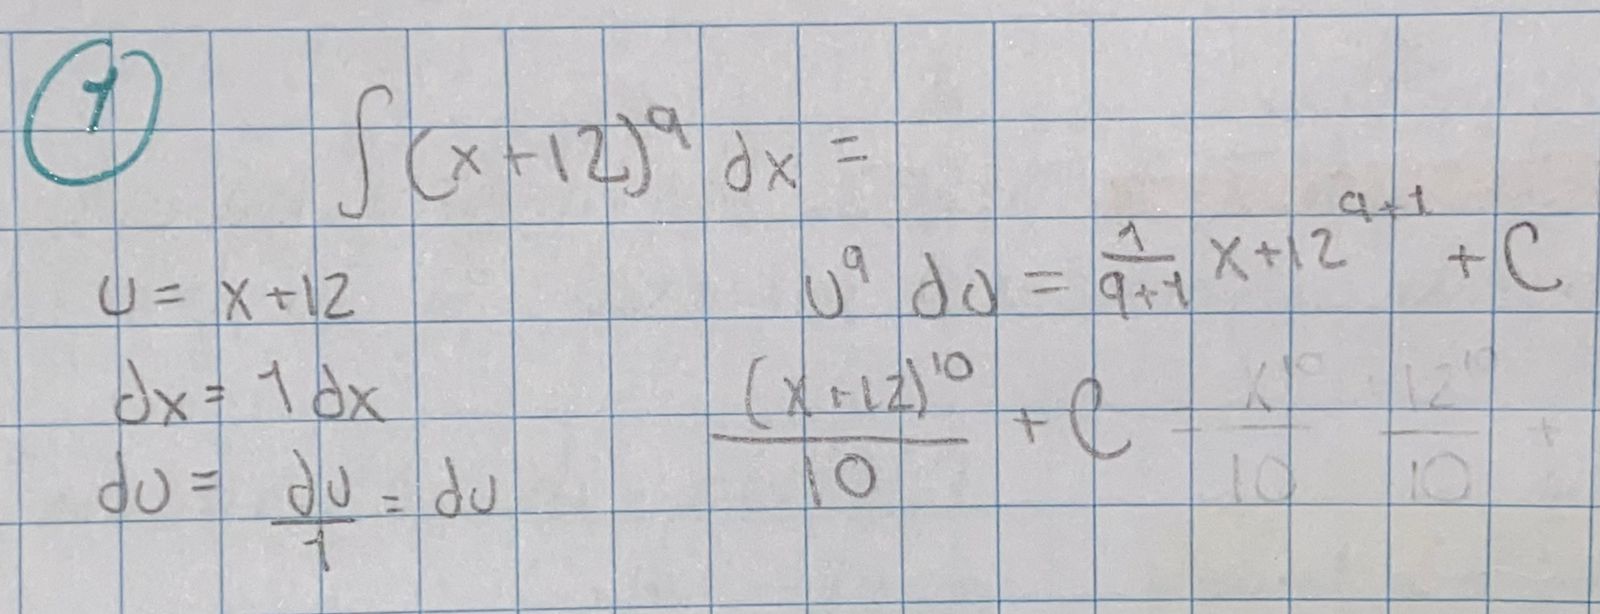 1
∫ (x+12)⁹ dx =
u = x+12
dx = 1 dx
du = du/1 = du
u⁹ du = 1/(9+1) x+12⁹⁺¹ + C
(x+12)¹⁰/10 + C = x¹⁰/10 12¹⁰/10 +